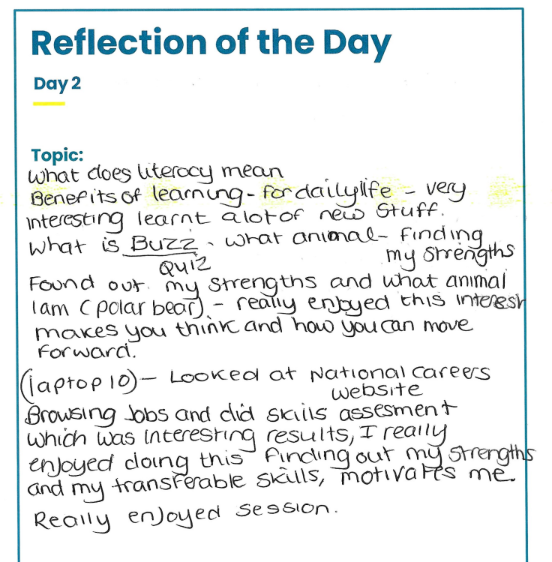 Reflection of the Day
Day 2
Topic:
What does literocy mean
Benefits of learning - for dailylife - very
interesting learnt a lot of new stuff.
What is Buzz . what animal - finding
QUIZ my strengths
Found out my strengths and what animal
I am (polar bear) - really enjoyed this interest
makes you think and how you can move
forward.
(laptop 10) - Looked at National careers
website
Browsing Jobs and did skills assesment
which was interesting results, I really
enjoyed doing this finding out my strengths
and my transferable skills, motivates me.
Really enjoyed session.